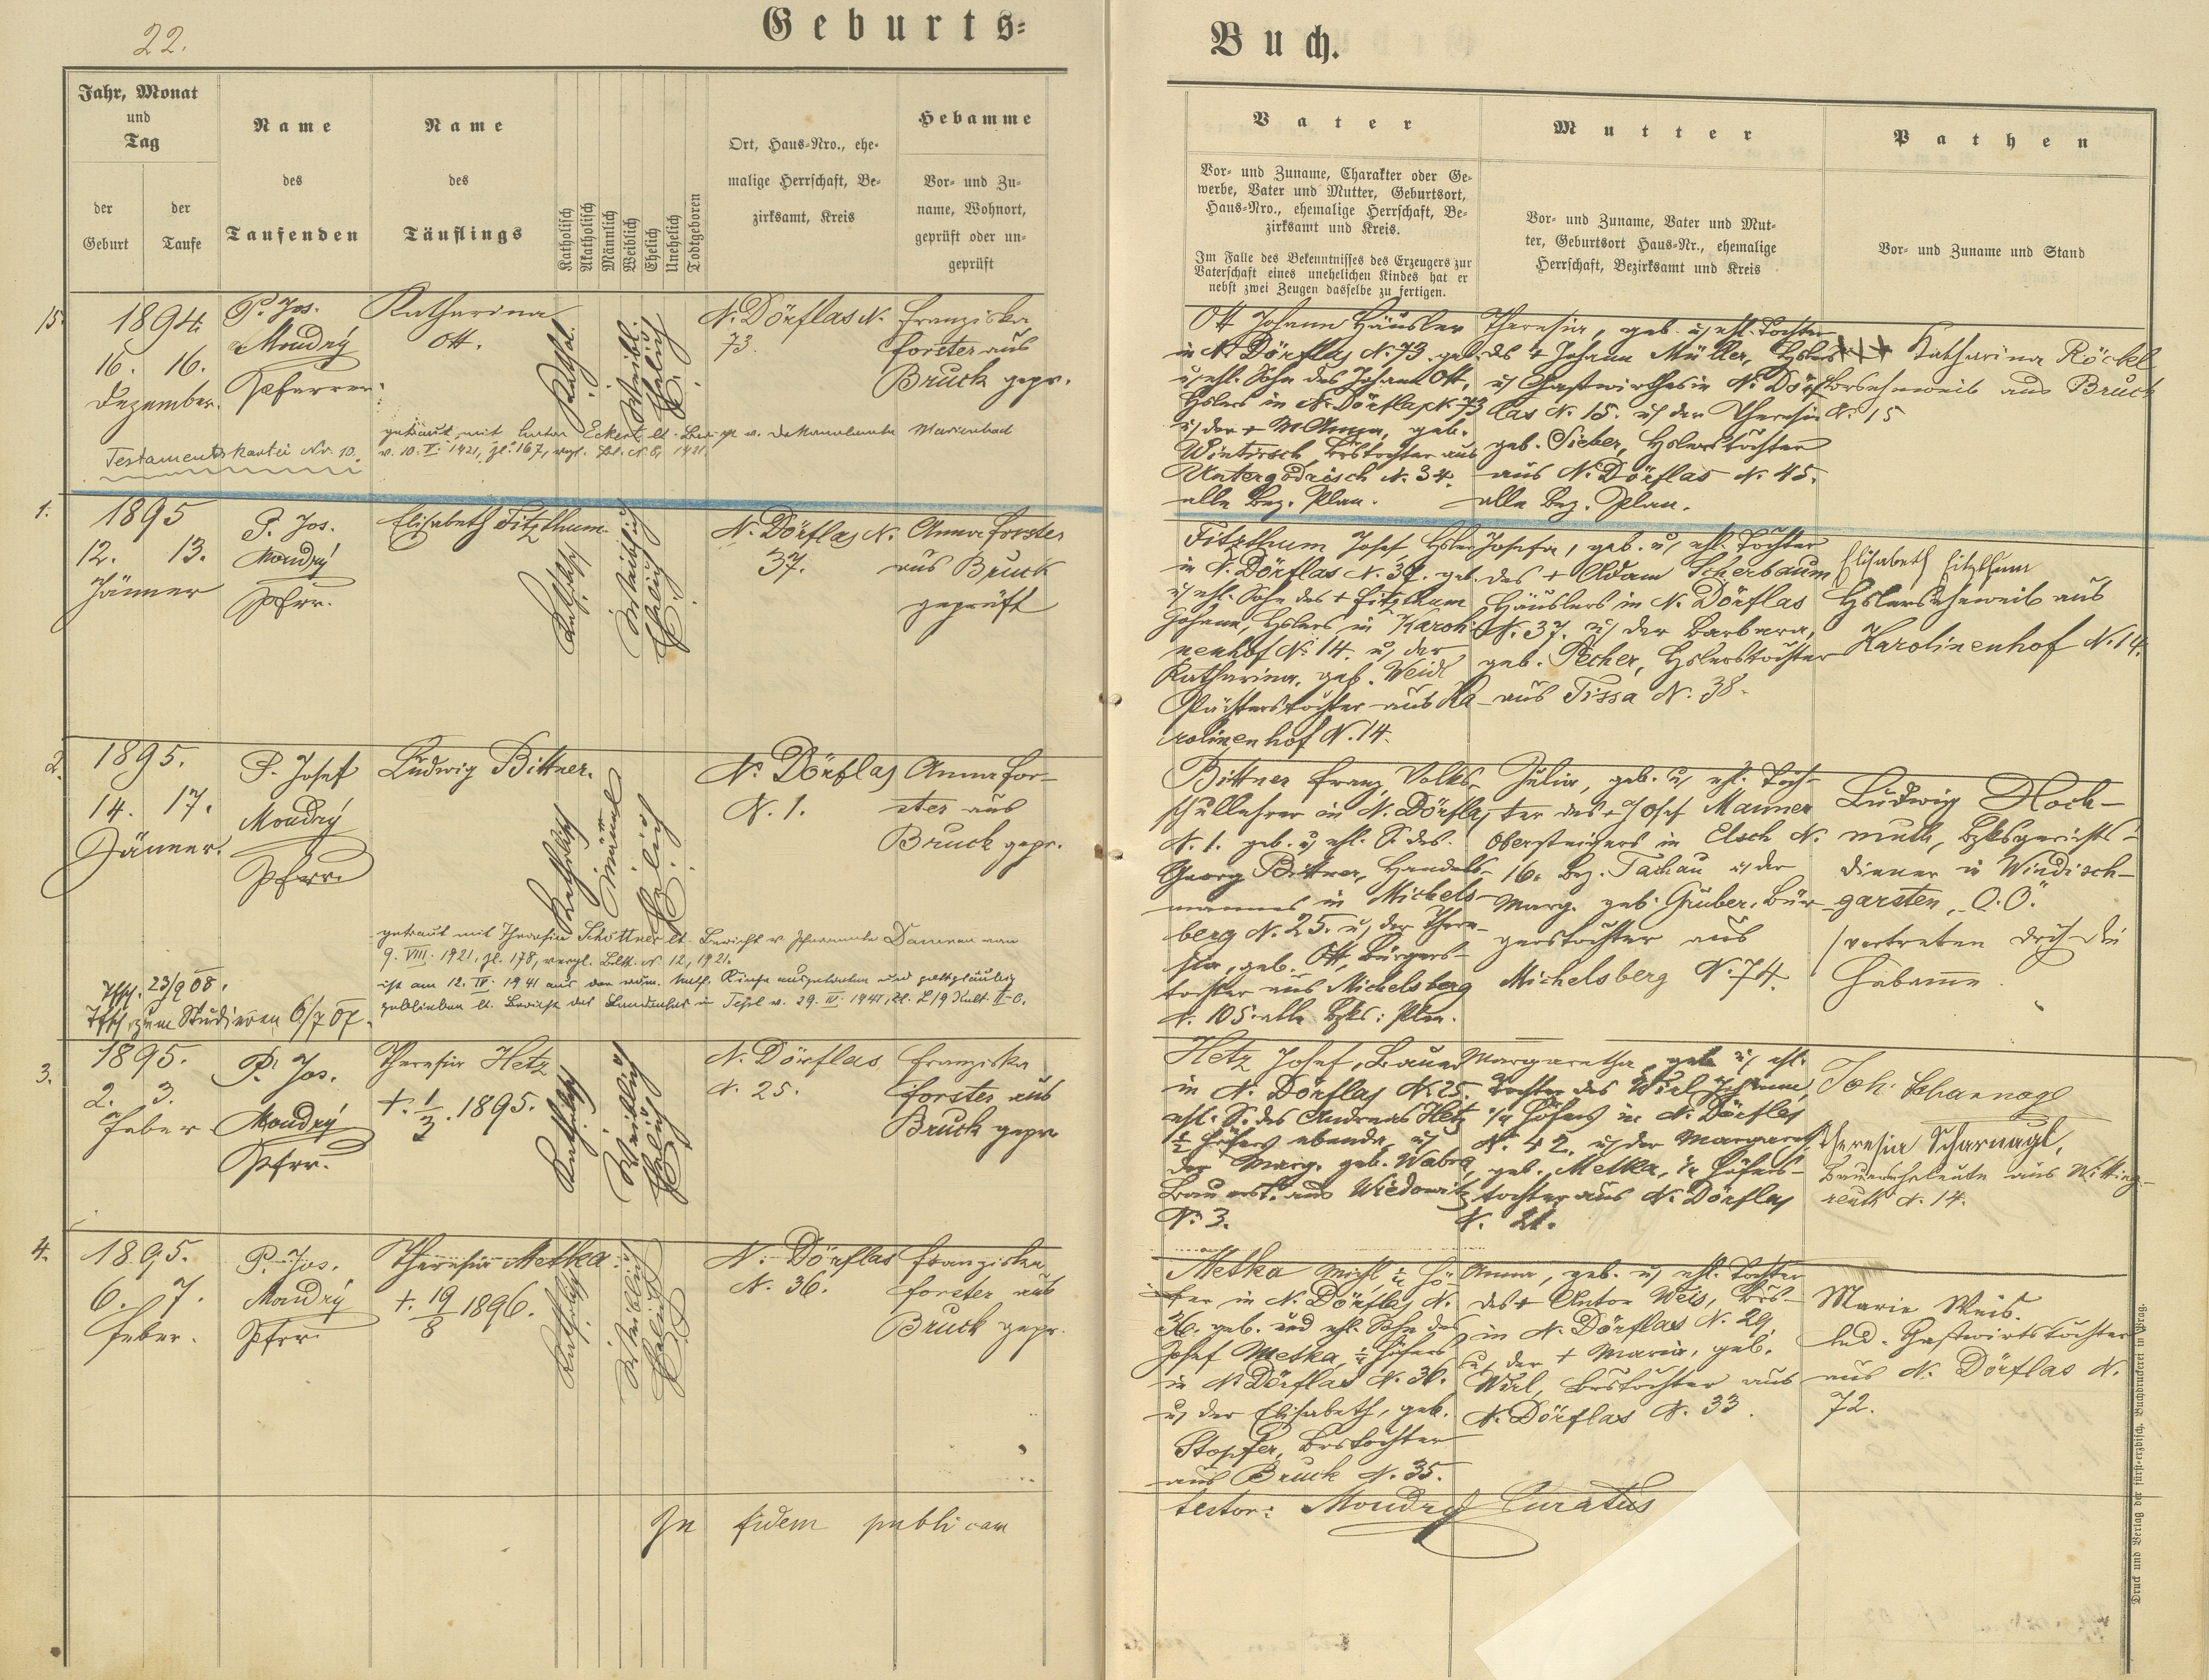 22.
Geburts-
Jahr, Monat
und
Tag
der
Geburt
der
Taufe
Name
des
Taufenden
Name
des
Täuflings
Katholisch
Akatholisch
Männlich
Weiblich
Ehelich
Unehelich
Todtgeboren
Ort, Haus-Nro., ehe-
malige Herrschaft, Be-
zirksamt, Kreis
Hebamme
Vor- und Zu-
name, Wohnort,
geprüft oder un-
geprüft
15.
1894.
16. 16.
Dezember.
P. Jos.
Moudrý
Pfarrer.
Katharina
Ott.
Kathol.
Weibl.
Ehelich
N. Dörflas N.
73.
Franziska
Forster aus
Bruck gepr.
Testamentskartei Nr. 10.
getraut mit Anton Eckert lt. v. Dekanalamte Marienbad
v. 10. V. 1921, zl. 167, vrgl. N. 8, 1921.
1.
1895
12. 13.
Jänner
P. Jos.
Moudrý
Pfrr.
Elisabeth Fitzthum.
Katholisch
Weiblich
Ehelich
N. Dörflas N.
37.
Anna Forster
aus Bruck
geprüft
2.
1895.
14. 17.
Jänner.
P. Josef
Moudrý
Pfrr.
Ludwig Bittner.
Katholisch
männl
Ehelich
N. Dörflas
N. 1.
Anna For-
ster aus
Bruck gepr.
getraut mit Theresia Schöttner lt. Bericht v. Pfarramte
9. VIII. 1921, zl. 178, vergl. N. 12, 1921.
ist am 12. IV. 1941 aus der röm. kath. Kirche ausgetreten und gottgläubig
geblieben lt. Bericht des Landrates in Tepl v. 29. IV. 1941,
23/9 08.
zum Studieren 6/7 07.
3.
1895.
2. 3.
Feber
P. Jos.
Moudrý
Pfrr.
Theresia Hetz
+. 1/3. 1895.
Katholisch
Weiblich
Ehelich
N. Dörflas
N. 25.
Franziska
Forster aus
Bruck gepr.
4.
1895.
6. 7.
Feber.
P. Jos.
Moudrý
Pfrr.
Theresia Metka.
+. 19/8 1896.
Katholisch
Weiblich
Ehelich
N. Dörflas
N. 36.
Franziska
Forster aus
Bruck gepr.
In fidem publicam
Buch.
Vater
Vor- und Zuname, Charakter oder Ge-
werbe, Vater und Mutter, Geburtsort,
Haus-Nro., ehemalige Herrschaft, Be-
zirksamt und Kreis.
Im Falle des Bekenntnisses des Erzeugers zur
Vaterschaft eines unehelichen Kindes hat er
nebst zwei Zeugen dasselbe zu fertigen.
Mutter
Vor- und Zuname, Vater und Mut-
ter, Geburtsort Haus-Nr., ehemalige
Herrschaft, Bezirksamt und Kreis
Pathen
Vor- und Zuname und Stand
Ott Johann Häusler
in N. Dörflas N. 73. geb.
u. ehl. Sohn des Johann Ott,
Hslers in N. Dörflas N. 73
u. der + M Anna, geb.
Wintersch aus
Untergodrisch N. 34.
alle Bez. Plan.
Theresia, geb. u. ehl. Tochter
des + Johann Müller, Hslers
u. Gastwirthes in N. Dörf-
las N. 15. u. der Theresia
geb. Sieber, Hslerstochter
aus N. Dörflas N. 45.
alle Bez. Plan.
+++ Katharina Röckl
aus Bruck
N. 15
Fitzthum Josef, Hsler
in N. Dörflas N. 37. geb.
u. ehl. Sohn des + Fitzthum
Johann, Hslers in Karoli-
nenhof N. 14. u. der
Katharina, geb. Weidl
Pächterstochter aus Ka-
rolinenhof N. 14.
Josefa, geb. u. ehl. Tochter
des + Adam Scherbaum
Häuslers in N. Dörflas
N. 37. u. der Barbara,
geb. Pecher, Hslerstochter
aus Tissa N. 38.
Elisabeth Fitzthum
Hslerseheweib aus
Karolinenhof N. 14.
Bittner Franz, Volks-
schullehrer in N. Dörflas
N. 1. geb. u. ehl. S. des
Georg Bittner, Handels-
mannes in Michels-
berg N. 25. u. der There-
sia, geb. Ott, Bürgers-
tochter aus Michelsberg
N. 105. alle Bzks: Plan.
Julia, geb. u. ehl. Toch-
ter des + Josef Manner
Obersteigers in Elsch N.
16. Bez. Tachau u. der
Marg. geb. Gruber, Bür-
gerstochter aus
Michelsberg N. 74.
Ludwig Hoch-
muth, Bzksgerichts-
diener in Windisch-
garsten, O.Ö.
/vertreten dch die
Hebame.
Hetz Josef, Bauer
in N. Dörflas N. 25.
ehl. S. des Andreas Hetz
1/2 Höfers ebenda, u.
der Marg. geb. Wabra,
Bauerst. aus Wiedowitz
N. 3.
Margaretha, geb. u. ehl.
Tochter des Wirl Johann,
1/4 Höfers in N. Dörflas
N. 42. u. der Margareth,
geb. Metka, 1/4 Höfers-
tochter aus N. Dörflas
N. 21.
Joh. Scharnagl
Theresia Scharnagl,
Bauerseheleute aus Witting-
reuth N. 14.
Metka Michl 1/4 Hö-
fer in N. Dörflas N.
36. geb. und ehl. Sohn des
Josef Metka, 1/4 Höfers
in N. Dörflas N. 36.
u. der Elisabeth, geb.
Stopfer, Brstochter
aus Bruck N. 35.
Anna, geb. u. ehl. Tochter
des + Anton Weis, Brs-
in N. Dörflas N. 29
u. der + Maria, geb.
Wirl, Brstochter aus
N. Dörflas N. 33.
Marie Weis.
led. Gastwirtstochter
aus N. Dörflas N.
72.
testor: Moudrý Curatus
Druck und Verlag der fürst-erzbisch. Buchdruckerei in Prag.